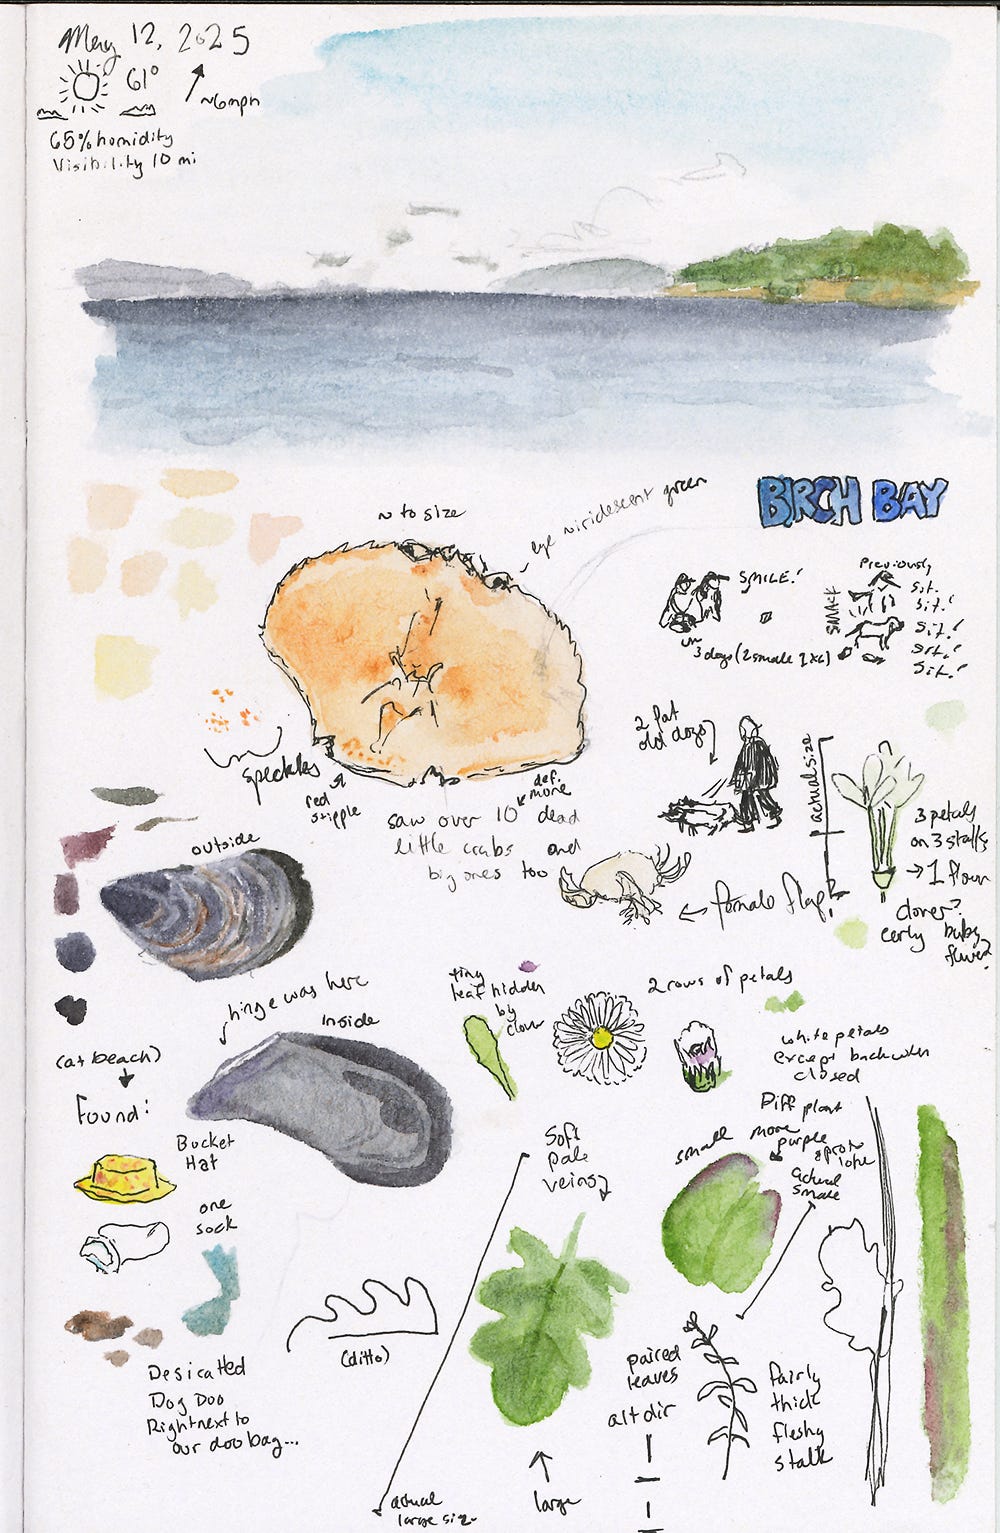 May 12, 2025
61°
~6mph
65% humidity
Visibility 10 mi
BIRCH BAY
~ to size
eye iridescent green
SMILE!
3 dogs (2 small 1 x6)
Previously
SMACK
Sit.
Sit!
Sit!
Sit!
Sit!
speckles
red
stipple
def.
more
saw over 10 dead
little crabs and
big ones too
2 fat
old dogs
actual size
3 petals
on 3 stalks
→ 1 flower
clover?
early baby
flower?
← female flap?
outside
hinge was here
Inside
tiny
leaf hidden
by
clover
2 rows of petals
white petals
except back when
closed
(at beach)
Found:
Bucket
Hat
one
sock
Desicated
Dog Doo
Right next to
our doo bag...
(ditto)
Soft
pale
veins
actual
large size
large
small
Diff plant
more
purple
actual
small
paired
leaves
alt dir
fairly
thick
fleshy
stalk